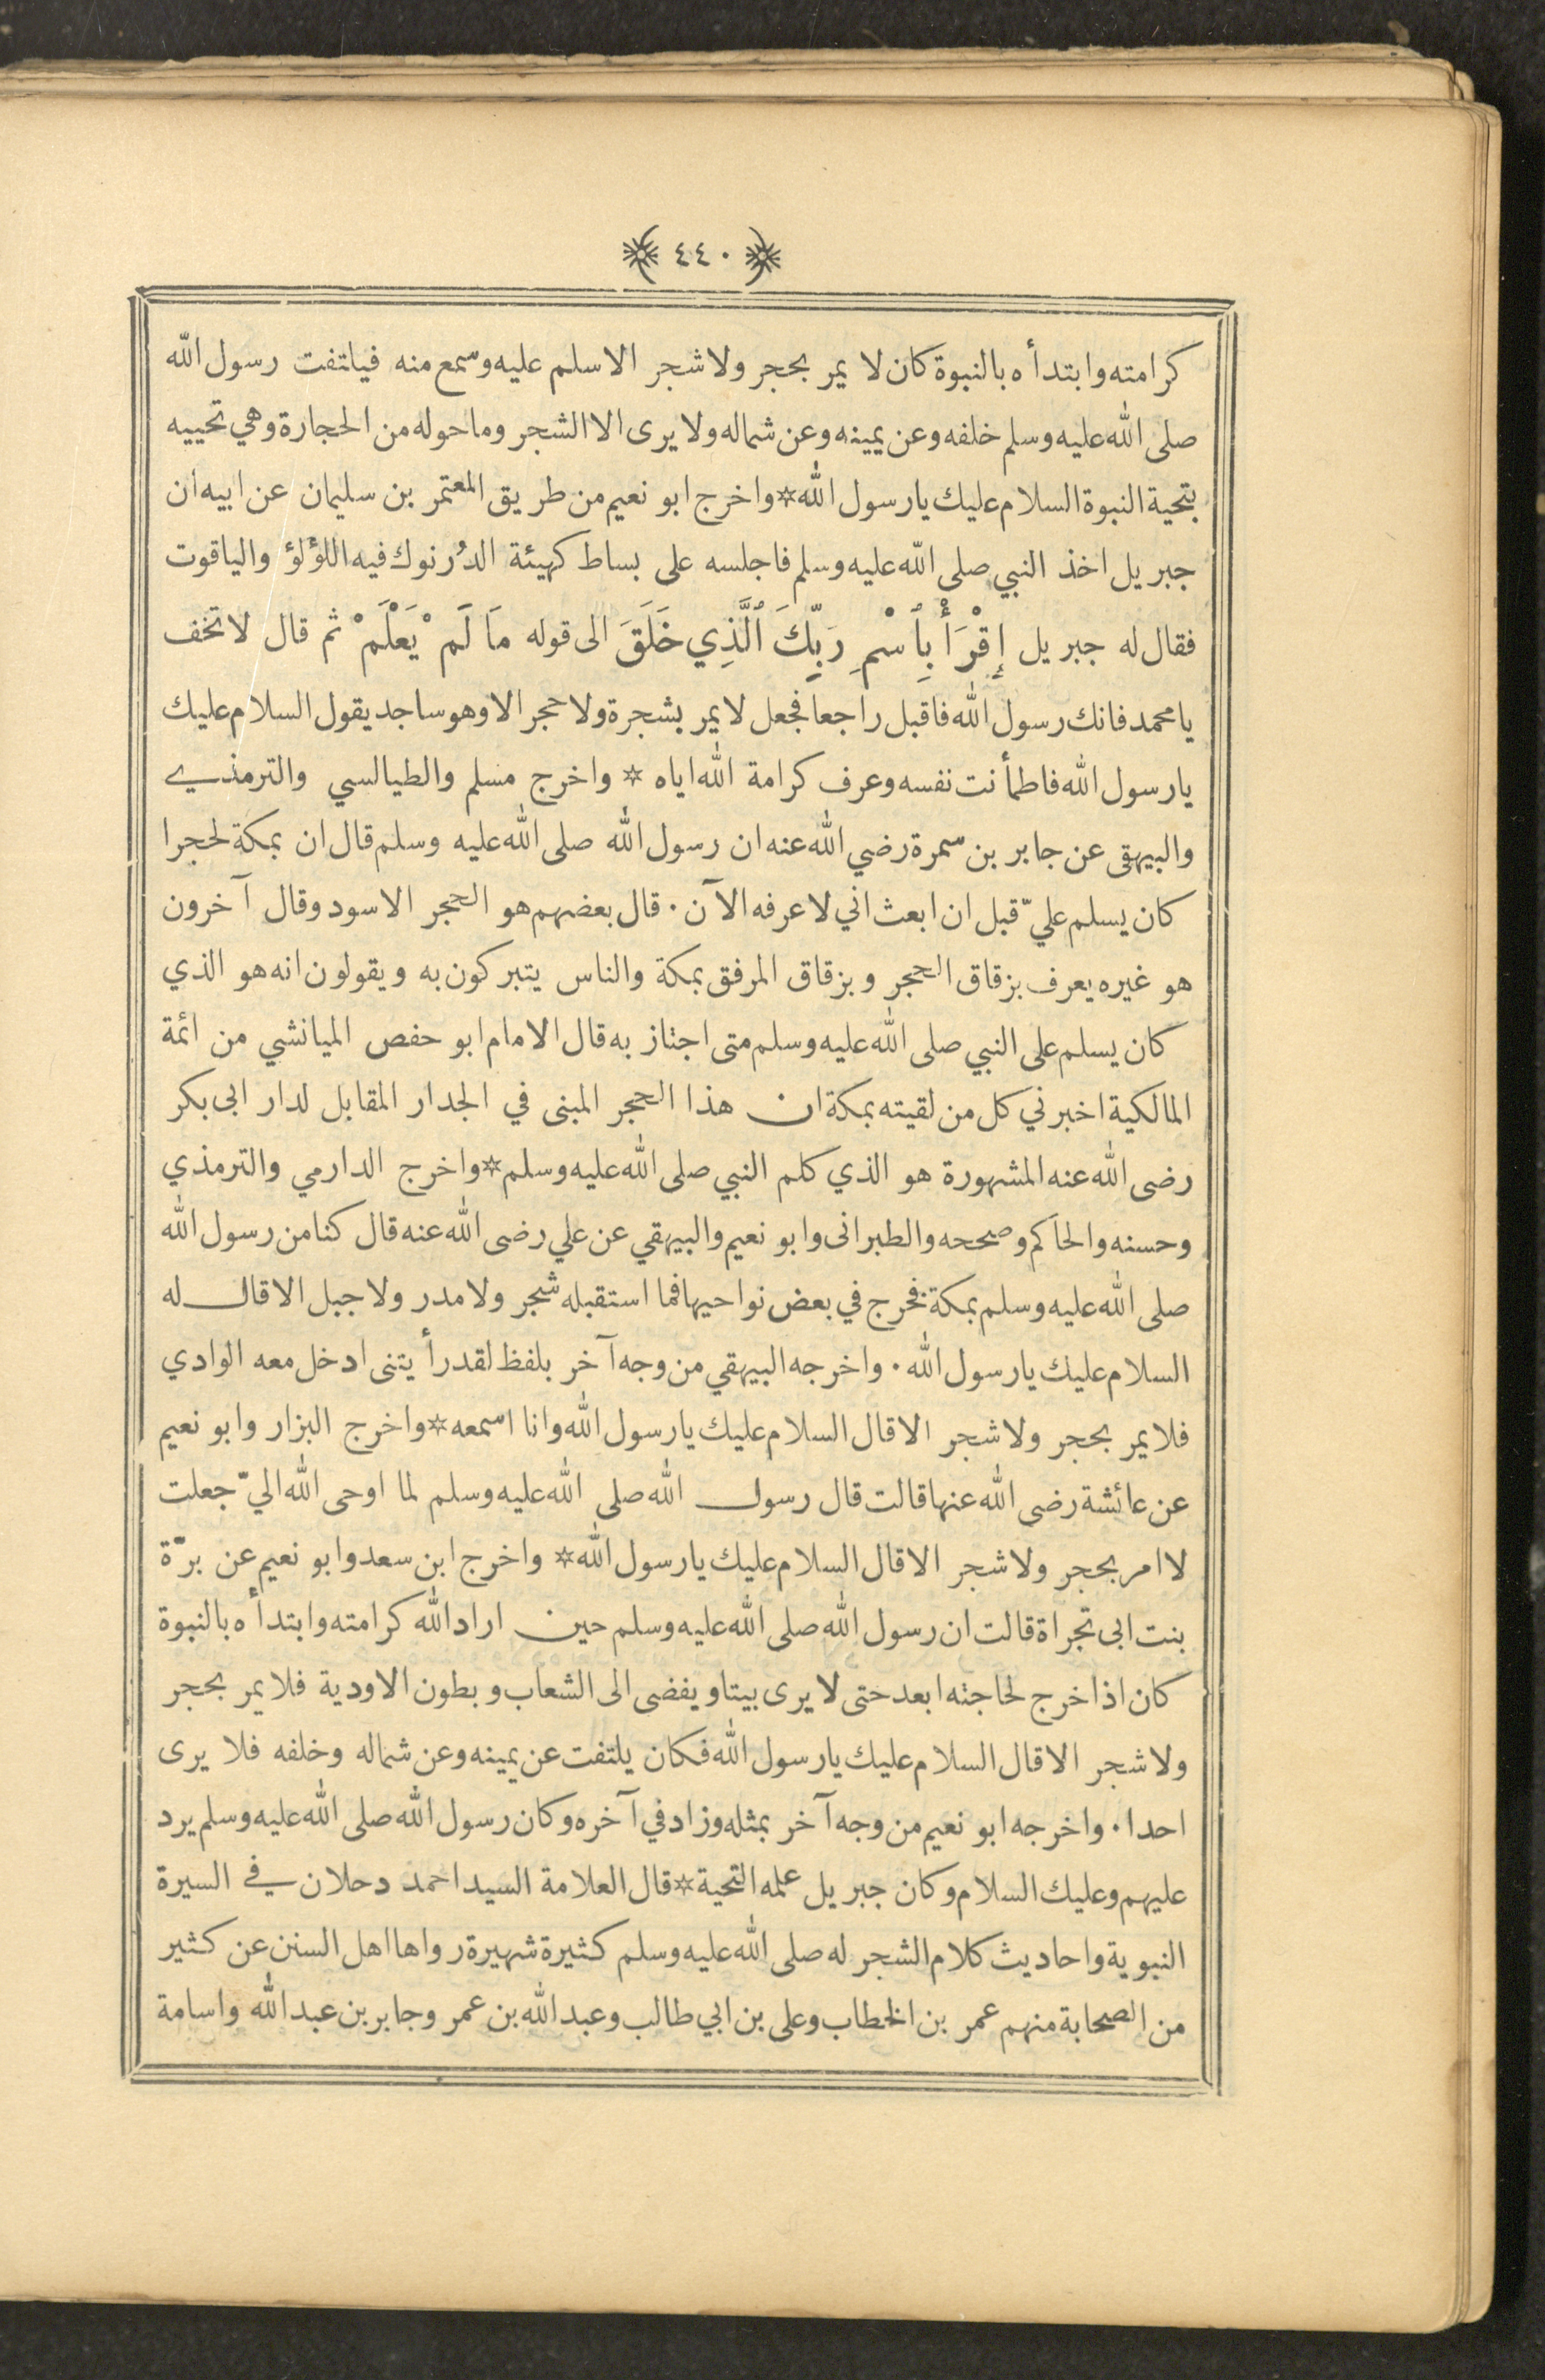 ﴿ ٤٤٠ ﴾
كرامته وابتدأه بالنبوة كان لا يمر بحجر ولا شجر الا سلم عليه وسمع منه فيلتفت رسول الله
صلى الله عليه وسلم خلفه وعن يمينه وعن شماله ولا يرى الا الشجر وما حوله من الحجارة وهي تحييه
بتحية النبوة السلام عليك يا رسول الله * واخرج ابو نعيم من طريق المعتمر بن سليمان عن ابيه ان
جبريل اخذ النبي صلى الله عليه وسلم فاجلسه على بساط كهيئة الدُرنوك فيه اللؤلؤ والياقوت
فقال له جبريل إِقْرَأْ بِٱسْمِ رَبِّكَ ٱلَّذِي خَلَقَ الى قوله مَا لَمْ يَعْلَمْ ثم قال لا تخف
يا محمد فانك رسول الله فاقبل راجعا فجعل لا يمر بشجرة ولا حجر الا وهو ساجد يقول السلام عليك
يا رسول الله فاطمأنت نفسه وعرف كرامة الله اياه * واخرج مسلم والطيالسي والترمذي
والبيهقى عن جابر بن سمرة رضي الله عنه ان رسول الله صلى الله عليه وسلم قال ان بمكة لحجرا
كان يسلم عليّ قبل ان ابعث اني لا عرفه الآن . قال بعضهم هو الحجر الاسود وقال آخرون
هو غيره يعرف بزقاق الحجر وبزقاق المرفق بمكة والناس يتبركون به ويقولون انه هو الذي
كان يسلم على النبي صلى الله عليه وسلم متى اجتاز به قال الامام ابو حفص الميانشي من ائمة
المالكية اخبرني كل من لقيته بمكة ان هذا الحجر المبنى في الجدار المقابل لدار ابى بكر
رضى الله عنه المشهورة هو الذي كلم النبي صلى الله عليه وسلم * واخرج الدارمي والترمذي
وحسنه والحاكم وصححه والطبرانى وابو نعيم والبيهقي عن علي رضى الله عنه قال كنا من رسول الله
صلى الله عليه وسلم بمكة فخرج في بعض نواحيها فما استقبله شجر ولا مدر ولا جبل الا قال له
السلام عليك يا رسول الله . واخرجه البيهقي من وجه آخر بلفظ لقد رأيتنى ادخل معه الوادي
فلا يمر بحجر ولا شجر الا قال السلام عليك يا رسول الله وانا اسمعه * واخرج البزار وابو نعيم
عن عائشة رضى الله عنها قالت قال رسول الله صلى الله عليه وسلم لما اوحى الله اليّ جعلت
لا امر بحجر ولا شجر الا قال السلام عليك يا رسول الله * واخرج ابن سعد وابو نعيم عن برّة
بنت ابى تجراة قالت ان رسول الله صلى الله عليه وسلم حين اراد الله كرامته وابتدأه بالنبوة
كان اذا خرج لحاجته ابعد حتى لا يرى بيتا ويفضى الى الشعاب وبطون الاودية فلا يمر بحجر
ولا شجر الا قال السلام عليك يا رسول الله فكان يلتفت عن يمينه وعن شماله وخلفه فلا يرى
احدا . واخرجه ابو نعيم من وجه آخر بمثله وزاد في آخره وكان رسول الله صلى الله عليه وسلم يرد
عليهم وعليك السلام وكان جبريل علمه التحية * قال العلامة السيد احمد دحلان في السيرة
النبوية واحاديث كلام الشجر له صلى الله عليه وسلم كثيرة شهيرة رواها اهل السنن عن كثير
من الصحابة منهم عمر بن الخطاب وعلى بن ابي طالب وعبد الله بن عمر وجابر بن عبد الله واسامة